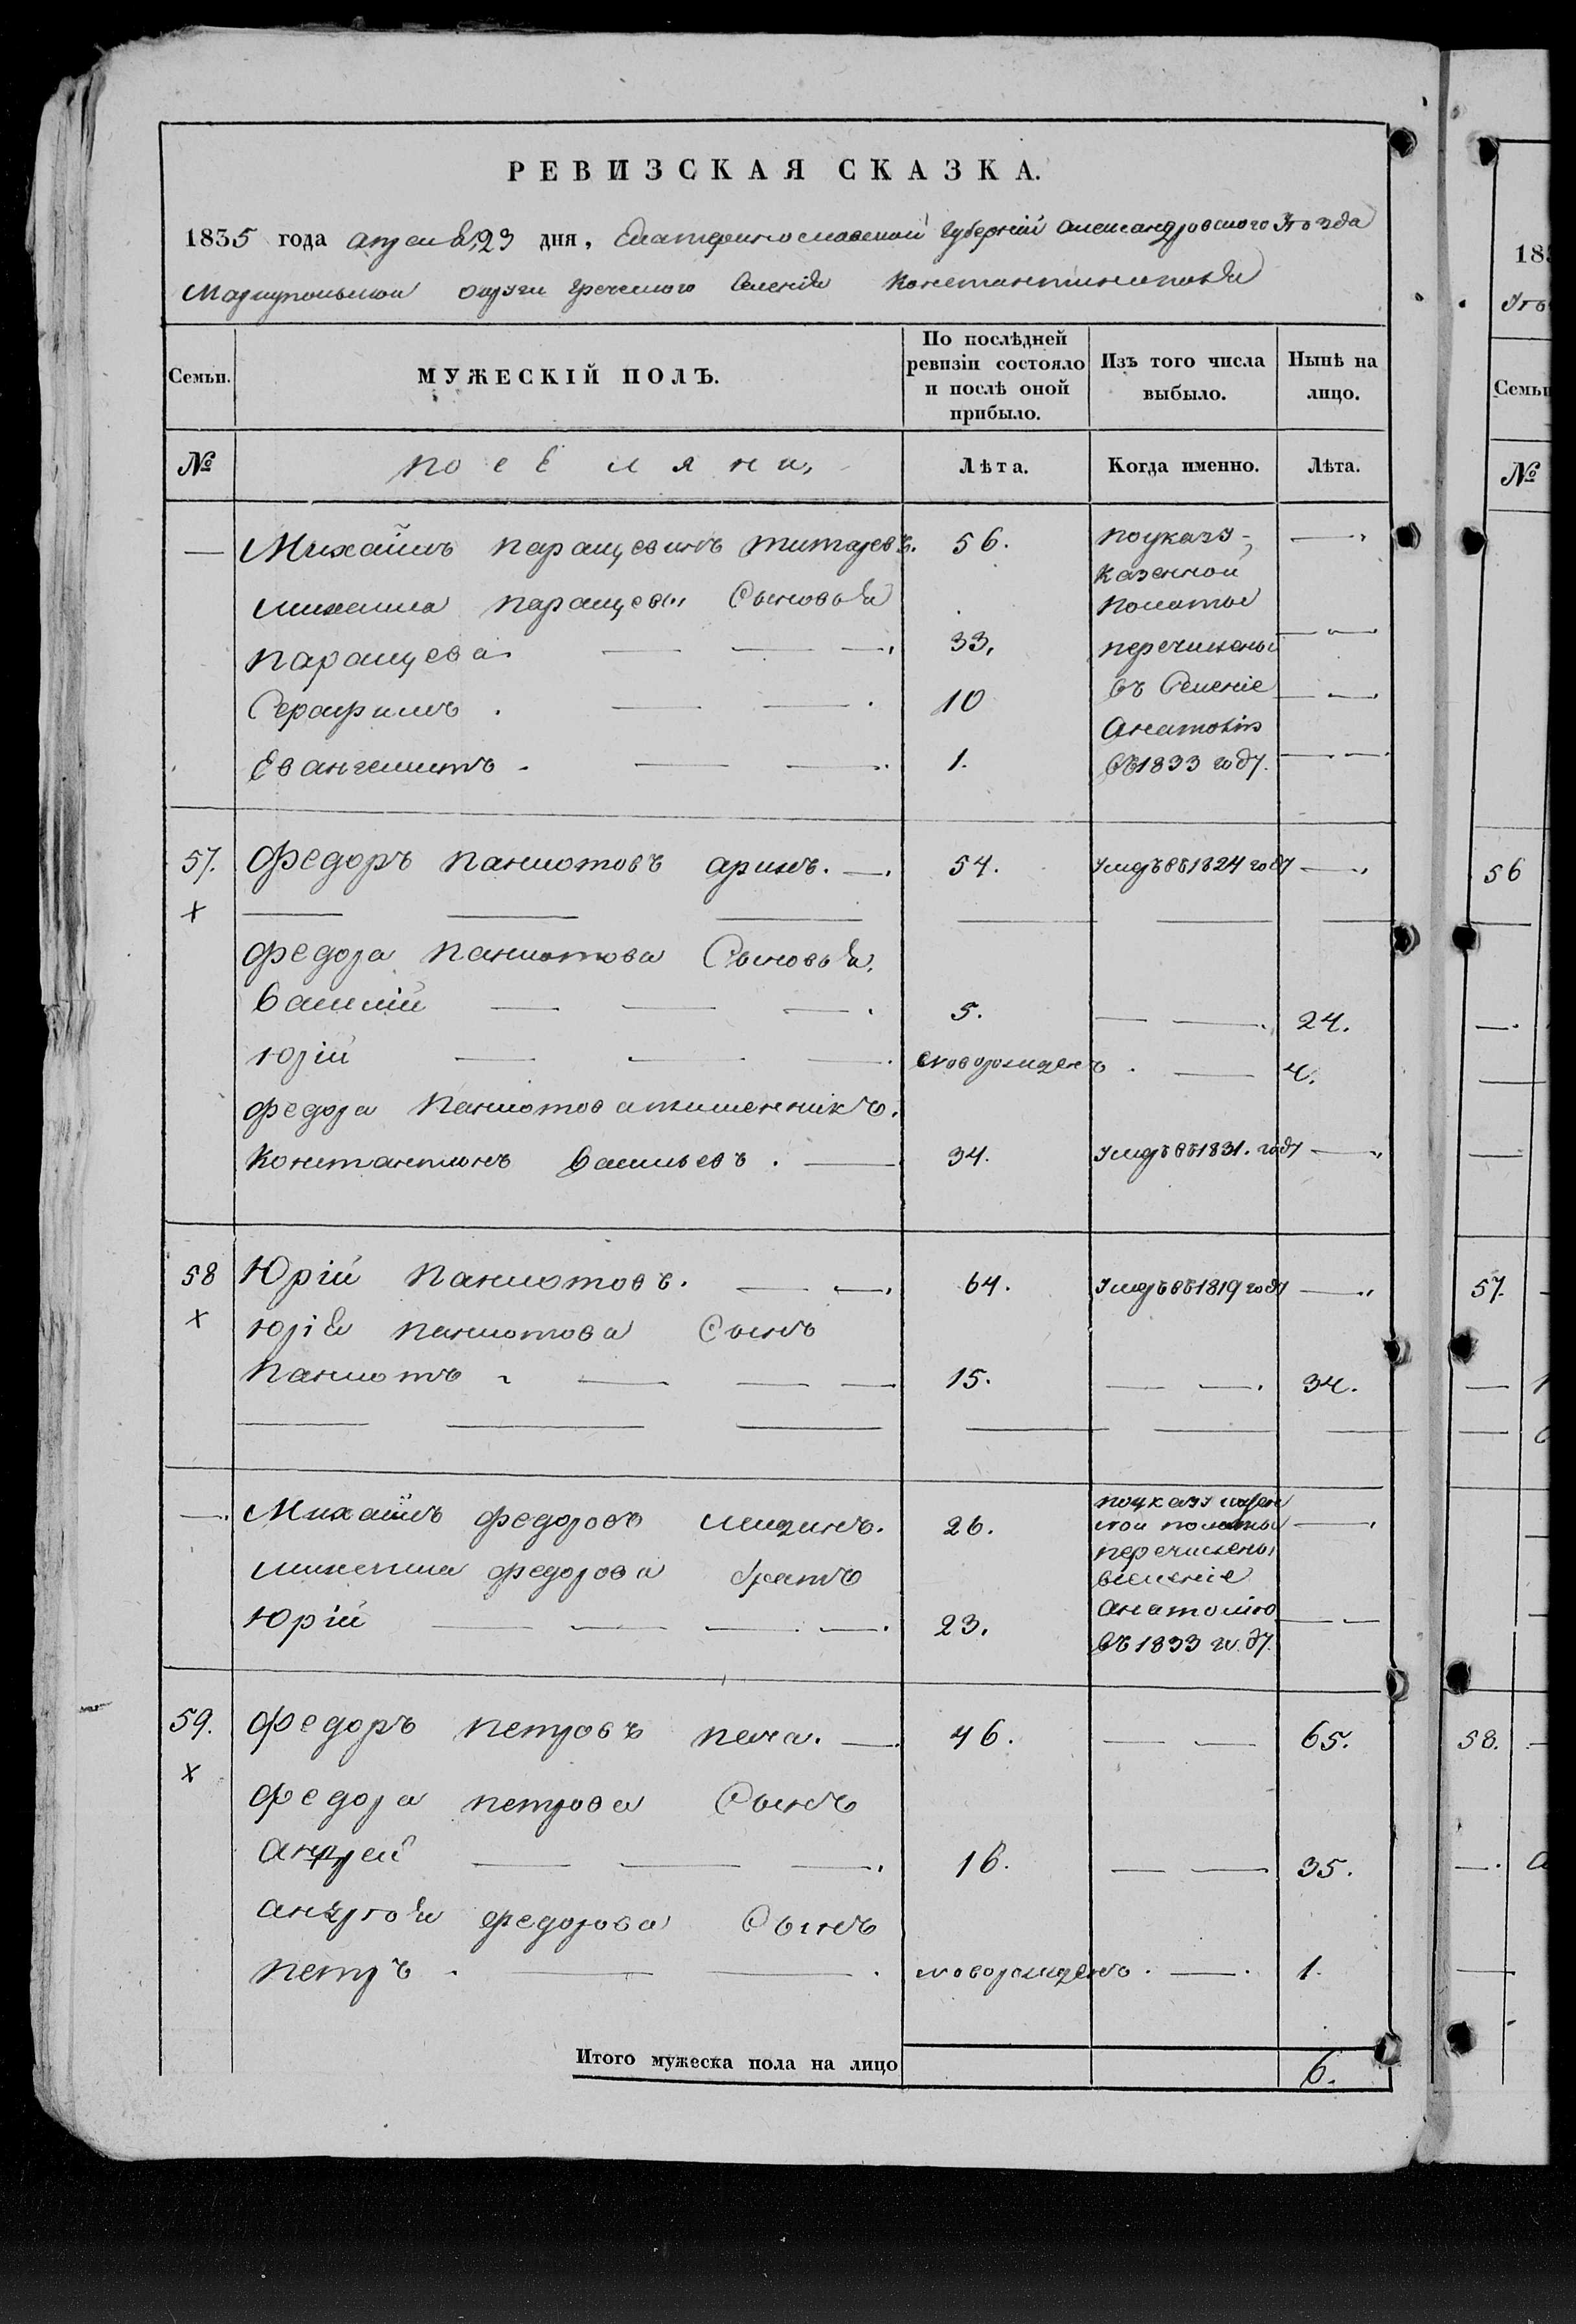 РЕВИЗСКАЯ СКАЗКА.
1835 года апреля 23 дня, Екатеринославской губерніи Александровского уѣзда
Мариупольской округи греческого селенія Константинополя
Семьи. МУЖЕСКІЙ ПОЛЪ. По послѣдней ревизіи состояло и послѣ оной прибыло. Изъ того числа выбыло. Нынѣ на лицо.
№ поселяна, Лѣта. Когда именно. Лѣта.
— Михаилъ паращевинъ 56. поуказу
казенной
михаила паращеви сыновья полаты
паращева 33, перечислены
Серафимъ . 10 въ селеніе
Анатолію
Евангелистъ . 1. въ 1833 году.
57. Федоръ паниотовъ аринъ. 54. умеръ въ 1824 году
х
федора паниотова сыновья.
василій 5. 24.
юрій новорожденъ . 4.
федора паниотова племенникъ.
константинъ васильевъ . 34. умеръ въ 1831. году
58 Юрій паниотовъ. 64. умеръ въ 1819 году
х юрія паниотова сынъ
паниотъ . 15. 34.
— Михаилъ федоровъ 26. поуказу казен
ной полаты
перечислены
михаила федорова братъ вселеніе
Юрій 23. анатолію
въ 1833 году.
59. федоръ петровъ печа. 46. 65.
х
федора петрова сынъ
андрей 16. 35.
андрѣя федорова сынъ
петръ . новорожденъ . 1.
Итого мужеска пола на лицо 6.
183
Семьи
№
56
57.
58.